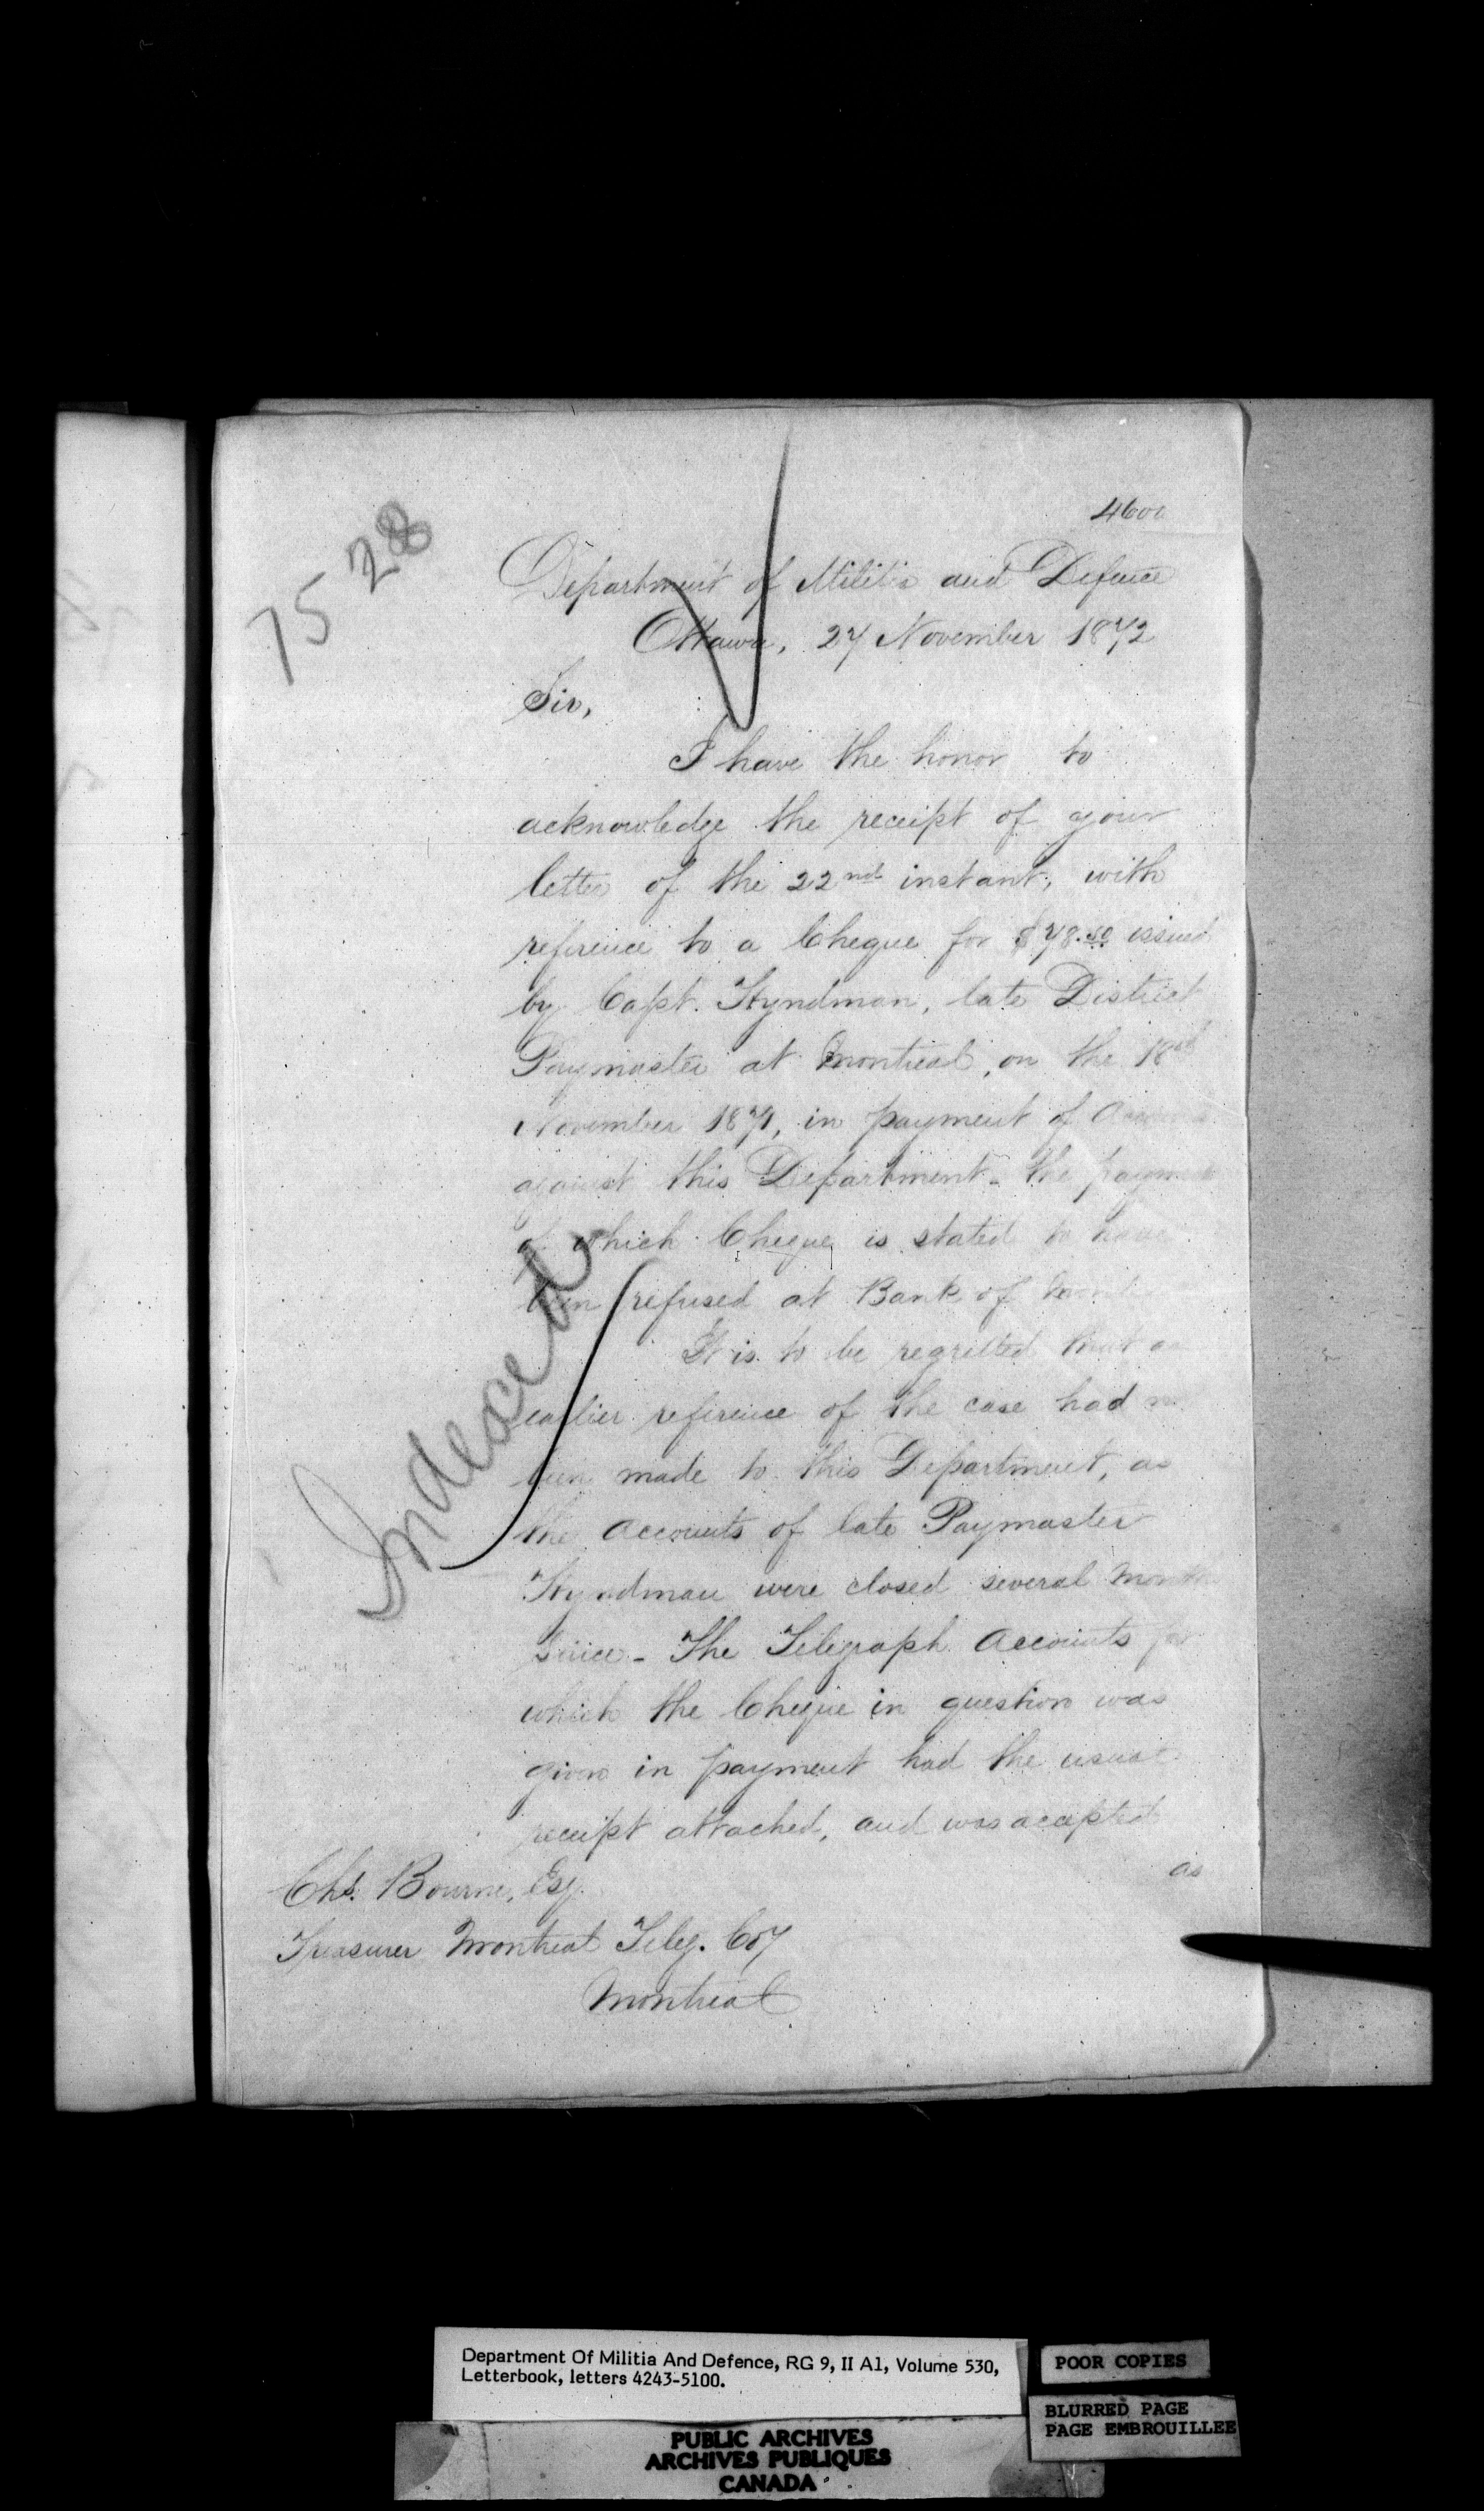 4600
75 28
Department of Militia and Defence
Ottawa, 27 November 1872
Sir,
I have the honor to
acknowledge the receipt of your
letter of the 22nd instant, with
reference to a Cheque for $78.50 issued
by Capt. Hyndman, late District
Paymaster at Montreal, on the 18th
November 1871, in payment of
against this Department - the
of which Cheque is stated to have
been refused at Bank of
It is to be regretted that
earlier reference of the case had
been made to this Department, as
the Accounts of late Paymaster
Hyndman were closed several
since - The Telegraph Accounts for
which the Cheque in question was
given in payment had the usual
receipt attached, and was accepted
as
Indexed
Chs. Bourne, Esq.
Treasurer Montreal Teleg. Coy
Montreal
Department Of Militia And Defence, RG 9, II A1, Volume 530,
Letterbook, letters 4243-5100.
POOR COPIES
BLURRED PAGE
PAGE EMBROUILLEE
PUBLIC ARCHIVES
ARCHIVES PUBLIQUES
CANADA